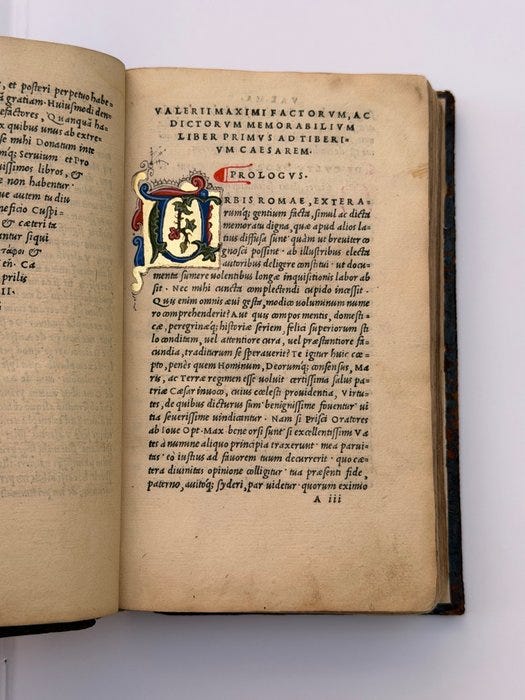 , et posteri perpetuo habe=
gratiam. Huiusmodi den
efactores, Quanquã ha=
x quibus unus ab extre
se mihi Donatum inte
mq; Seruium et Pro
uissimos libros, &
te non habentur.
ue eadem tu diu
neficio Cuspi=
& cæteri ta
antur siqui
prilis
II.
VALERII MAXIMI FACTORVM, AC
DICTORVM MEMORABILIVM
LIBER PRIMUS AD TIBERI=
VM CAESAREM.
PROLOGVS.
VRBIS ROMAE, EXTERA=
rumq; gentium facta, simul ac dicta
memoratu digna, quæ apud alios la=
tius diffusa sunt quàm ut breuiter co
gnosci possint. ab illustribus electa
autoribus deligere constitui. ut docu=
menta sumere uolentibus longæ inquisitionis labor ab
sit. Nec mihi cuncta complectendi cupido incessit.
Quis enim omnis æui gesta, modico uoluminum nume
ro comprehenderit? Aut quis compos mentis, domesti=
cæ, peregrinæq; historiæ seriem, felici superiorum sti
lo conditam, uel attentiore cura, uel præstantiore fa=
cundia, traditurum se sperauerit? Te igitur huic cœ=
pto, penès quem Hominum, Deorumq; consensus, Ma
ris, ac Terræ regimen esse uoluit certissima salus pa=
triæ Cæsar inuoco, cuius cœlesti prouidentia, Virtu=
tes, de quibus dicturus sum benignissime fouentur. ui
tia seuerissime uindicantur. Nam si Prisci Oratores
ab Ioue Opt. Max. bene orsi sunt. si excellentissimi Va
tes à numine aliquo principia traxerunt. mea parui=
tas eo iustius ad fauorem tuum decurrerit. quo cæ=
tera diuinitas opinione colligitur. tua præsenti fide,
paterno, auitoq; syderi, par uidetur. quorum eximio
A iii